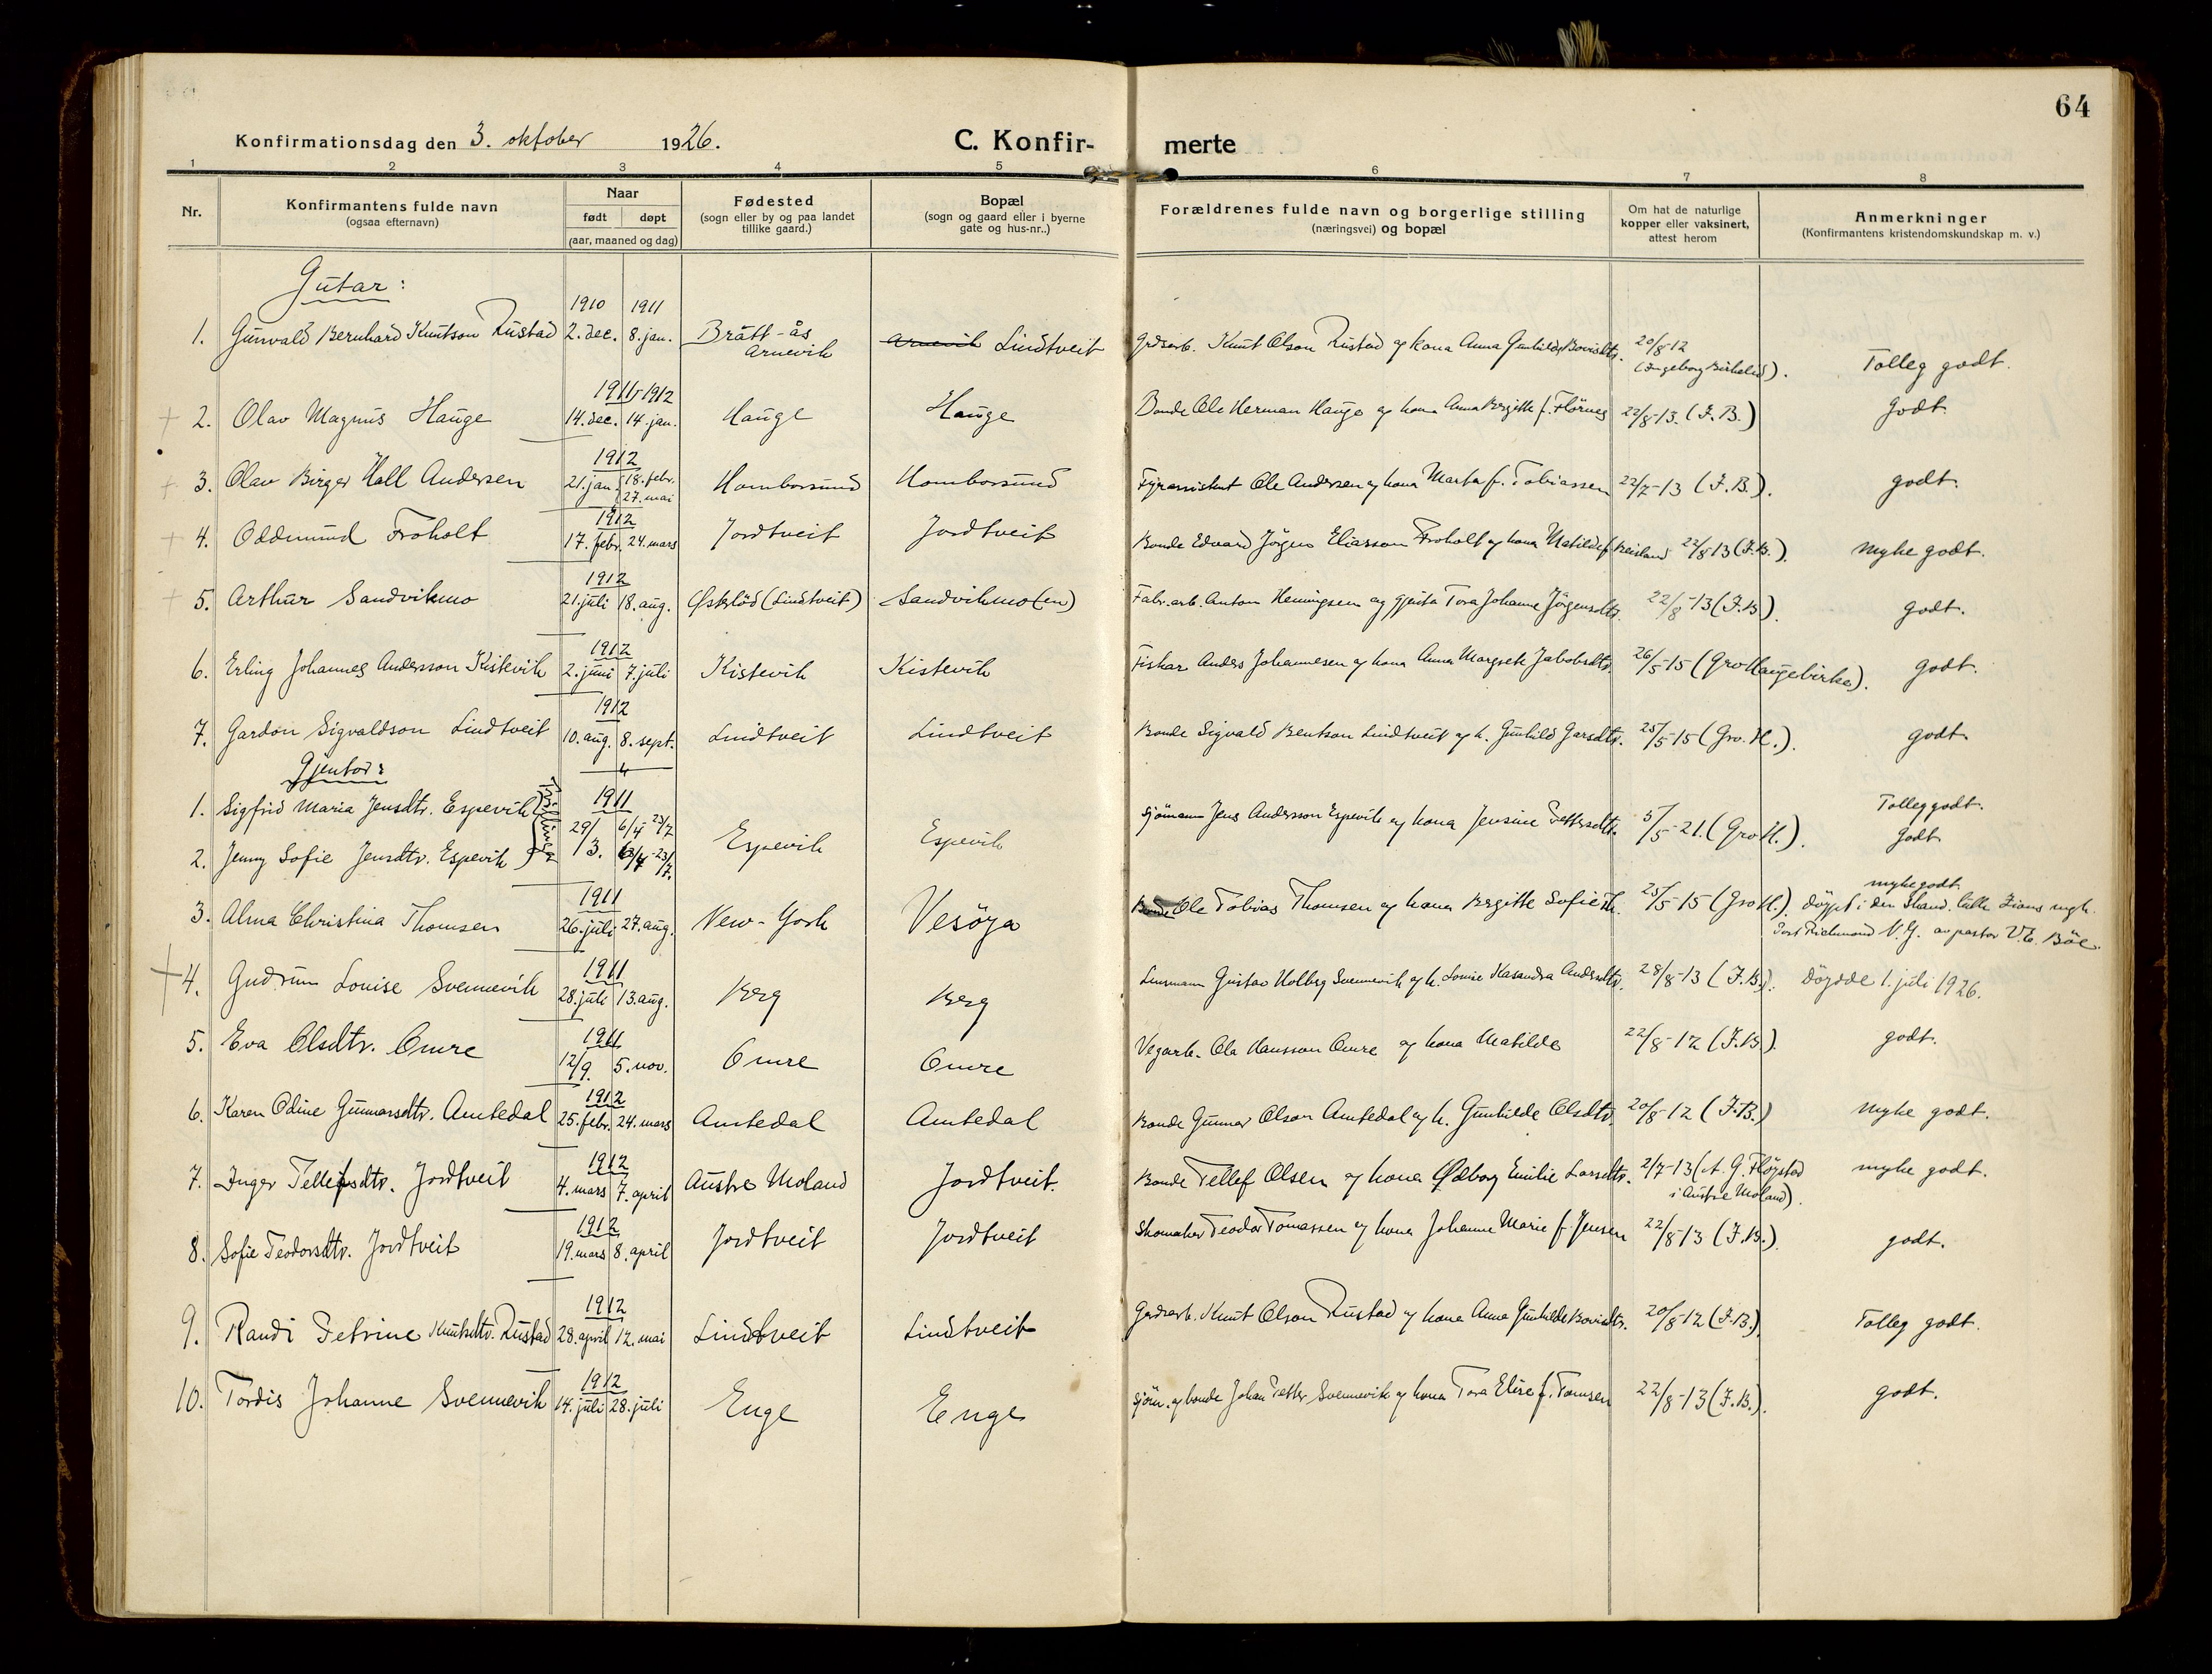 64
Konfirmationsdag den 3. oktober 1926.
C. Konfir-
merte
1 2 3 4 5 6 7 8
Nr.
Konfirmantens fulde navn
(ogsaa efternavn)
Naar
født døpt
(aar, maaned og dag)
Fødested
(sogn eller by og paa landet
tillike gaard.)
Bopæl
(sogn og gaard eller i byerne
gate og hus-nr..)
Forældrenes fulde navn og borgerlige stilling
(næringsvei) og bopæl
Om hat de naturlige
kopper eller vaksinert,
attest herom
Anmerkninger
(Konfirmantens kristendomskundskap m. v.)
Gutar:
1910 1911
1. Gunvald Bernhard Knutson Rustad 2. dec. 8. jan. Brått-ås Arnevik Arnevik Lindtveit Grdsarb. Knut Olson Rustad og kona Anna Gunhilde Bovidtr. 20/8-12
(Ingeborg Birkelid). Tolleg godt.
1911-1912
2. Olav Magnus Hauge 14. dec. 14. jan. Hauge Hauge Bonde Ole Herman Hauge og kona Anna Bergitte f. 22/8-13. (I.B.) Godt.
1912
3. Olav Birger Hall Andersen 21. jan. 18. febr. 27. mai Homborsund Homborsund Fyrassistent Ole Andersen og kona Marta f. Tobiassen 22/7-13 (I.B.). godt.
1912
4. Oddmund Froholt 17. febr. 24. mars Jordtveit Jordtveit Bonde Edvard Jörgen Eliassen Froholt og kona Matilde f. Beisland 22/8 13 (I.B.). Myke godt.
1912
5. Arthur Sandvikmo 21. juli 18. aug. Øskslöd (Lindtveit) Sandvikmo(en) Fabr. arb. Anton Henningsen og gjenta Tora Johanne Jörgensdtr. 22/8-13 (I.B.). godt.
1912
6. Erling Johannes Andersson Kistevik 2. juni 7. juli Kistevik Kistevik Fiskar Anders Johannesen og kona Anna Margrete Jakobsdtr. 26/5-15 (Gro Haugebirke). godt.
1912
7. Gardon Sigvaldson Lindtveit 10. aug. 8. sept. Lindtveit Lindtveit Bonde Sigvald Bentson Lindtveit og k. Gunhild Garsdtr. 25/5-15 (Gro. H.). godt.
Gjentor:
1911
1. Sigfrid Maria Jensdtr. Espevik 29/3. 6/4 23/7 Espevik Espevik Sjömann Jens Andersson Espevik og kona Jensine Pettersdtr. 5/5-21. (Gro H.). Tolleg godt.
2. Jenny Sofie Jensdtr. Espevik 6/4 23/7. Godt.
1911
3. Alma Christina Thomsen 26. juli 27. aug. New-York Vesöya Bonde Ole Tobias Thomsen og kona Bergitte Sofie Th. 25/5-15 (Gro H.). myke godt.
döypt i den Skand. luth. Zions mgh.
Port Richmond N.Y. av pastor V.E. Böe.
1911
4. Gudrun Louise Svennevik 28. juli 13. aug. Berg Berg Lensmann Gustav Holberg Svennevik og k. Louise Kasandra Andersdtr. 28/8-13 (I.B.). Döydde 1. juli 1926.
1911
5. Eva Olsdtr. Omre 12/9. 5. nov. Omre Omre Vegarb. Ola Hansson Omre og kona Matilde 22/8-12 (I.B.). godt.
1912
6. Karen Odine Gunnarsdtr. Amtedal 25. febr. 24. mars Amtedal Amtedal Bonde Gunnar Olson Amtedal og k. Gunhilde Olsdtr. 20/8-12 (I.B.) Myke godt.
1912
7. Inger Tellefsdtr. Jordtveit 4. mars 7. april Austre Moland Jordtveit. Bonde Tellef Olsen og kona Ødborg Emilie Larsdtr. 2/7-13 (A. G. Flöystad
i Austre Moland). myke godt.
1912
8. Sofie Teodorsdtr. Jordtveit 19. mars 8. april Jordtveit Jordtveit Skomaker Teodor Tomassen og kona Johanne Marie f. Jensen 22/8-13 (I.B.). godt.
1912
9. Randi Petrine Knutsdtr. Rustad 28. april 12. mai Lindtveit Lindtveit Grdsarb. Knut Olson Rustad og kona Anna Gunhilde Bovidtr. 20/8-12 (I.B.). Tolleg godt.
1912
10. Tordis Johanne Svennevik 14. juli 28. juli Enge Enge Sjöm. og bonde Johan Petter Svennevik og kona Tora Elise f. Tomsen 22/8-13 (I.B.). godt.